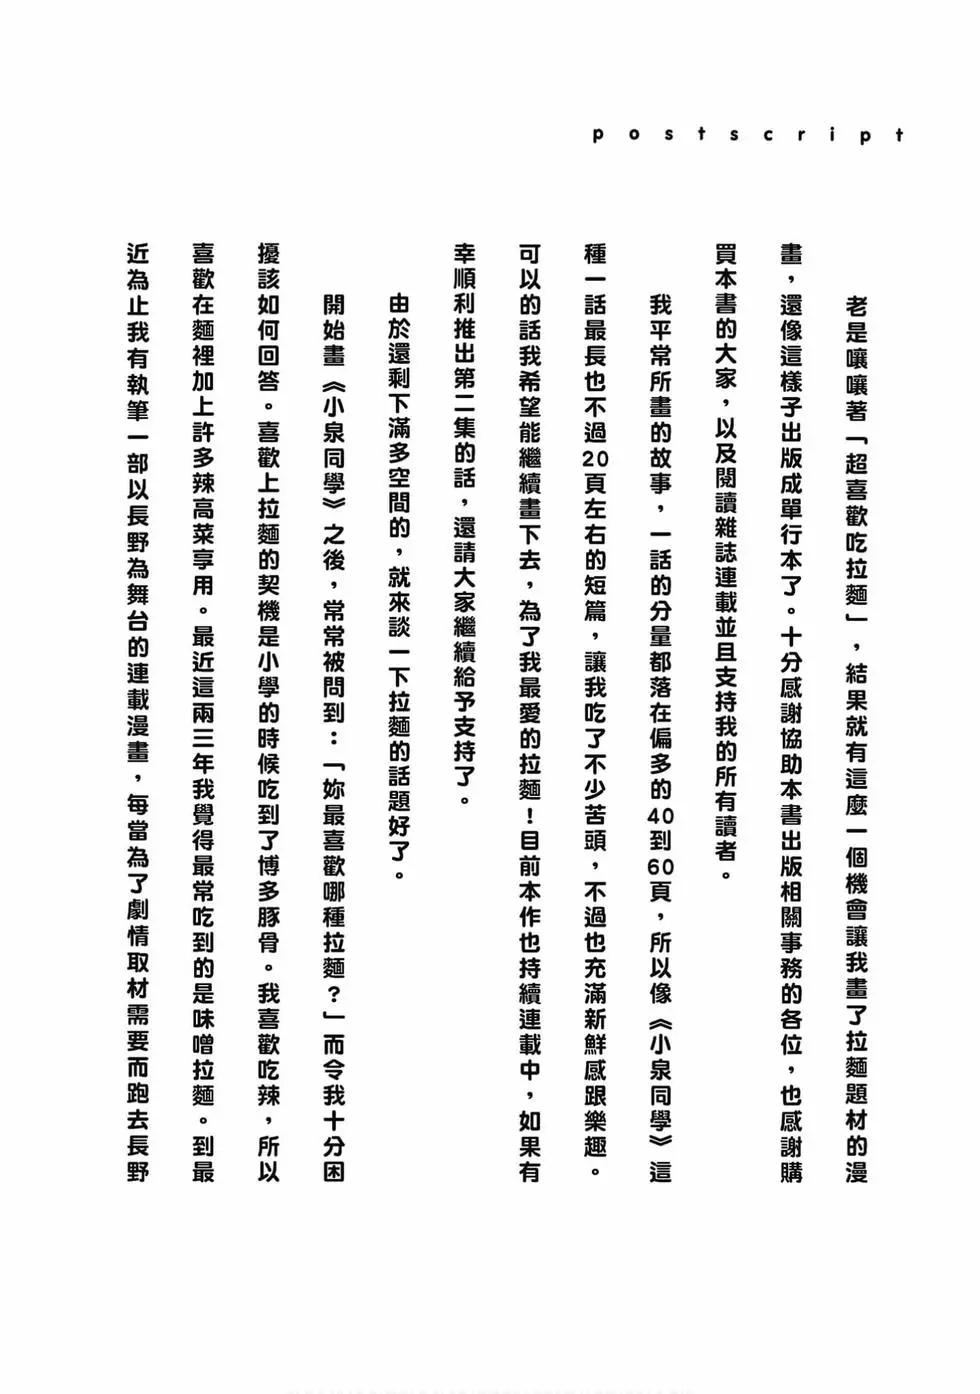 postscript
老是嚷嚷著「超喜歡吃拉麵」，結果就有這麼一個機會讓我畫了拉麵題材的漫
畫，還像這樣子出版成單行本了。十分感謝協助本書出版相關事務的各位，也感謝購
買本書的大家，以及閱讀雜誌連載並且支持我的所有讀者。
我平常所畫的故事，一話的分量都落在偏多的40到60頁，所以像《小泉同學》這
種一話最長也不過20頁左右的短篇，讓我吃了不少苦頭，不過也充滿新鮮感跟樂趣。
可以的話我希望能繼續畫下去，為了我最愛的拉麵！目前本作也持續連載中，如果有
幸順利推出第二集的話，還請大家繼續給予支持了。
由於還剩下滿多空間的，就來談一下拉麵的話題好了。
開始畫《小泉同學》之後，常常被問到：「妳最喜歡哪種拉麵？」而令我十分困
擾該如何回答。喜歡上拉麵的契機是小學的時候吃到了博多豚骨。我喜歡吃辣，所以
喜歡在麵裡加上許多辣高菜享用。最近這兩三年我覺得最常吃到的是味噌拉麵。到最
近為止我有執筆一部以長野為舞台的連載漫畫，每當為了劇情取材需要而跑去長野